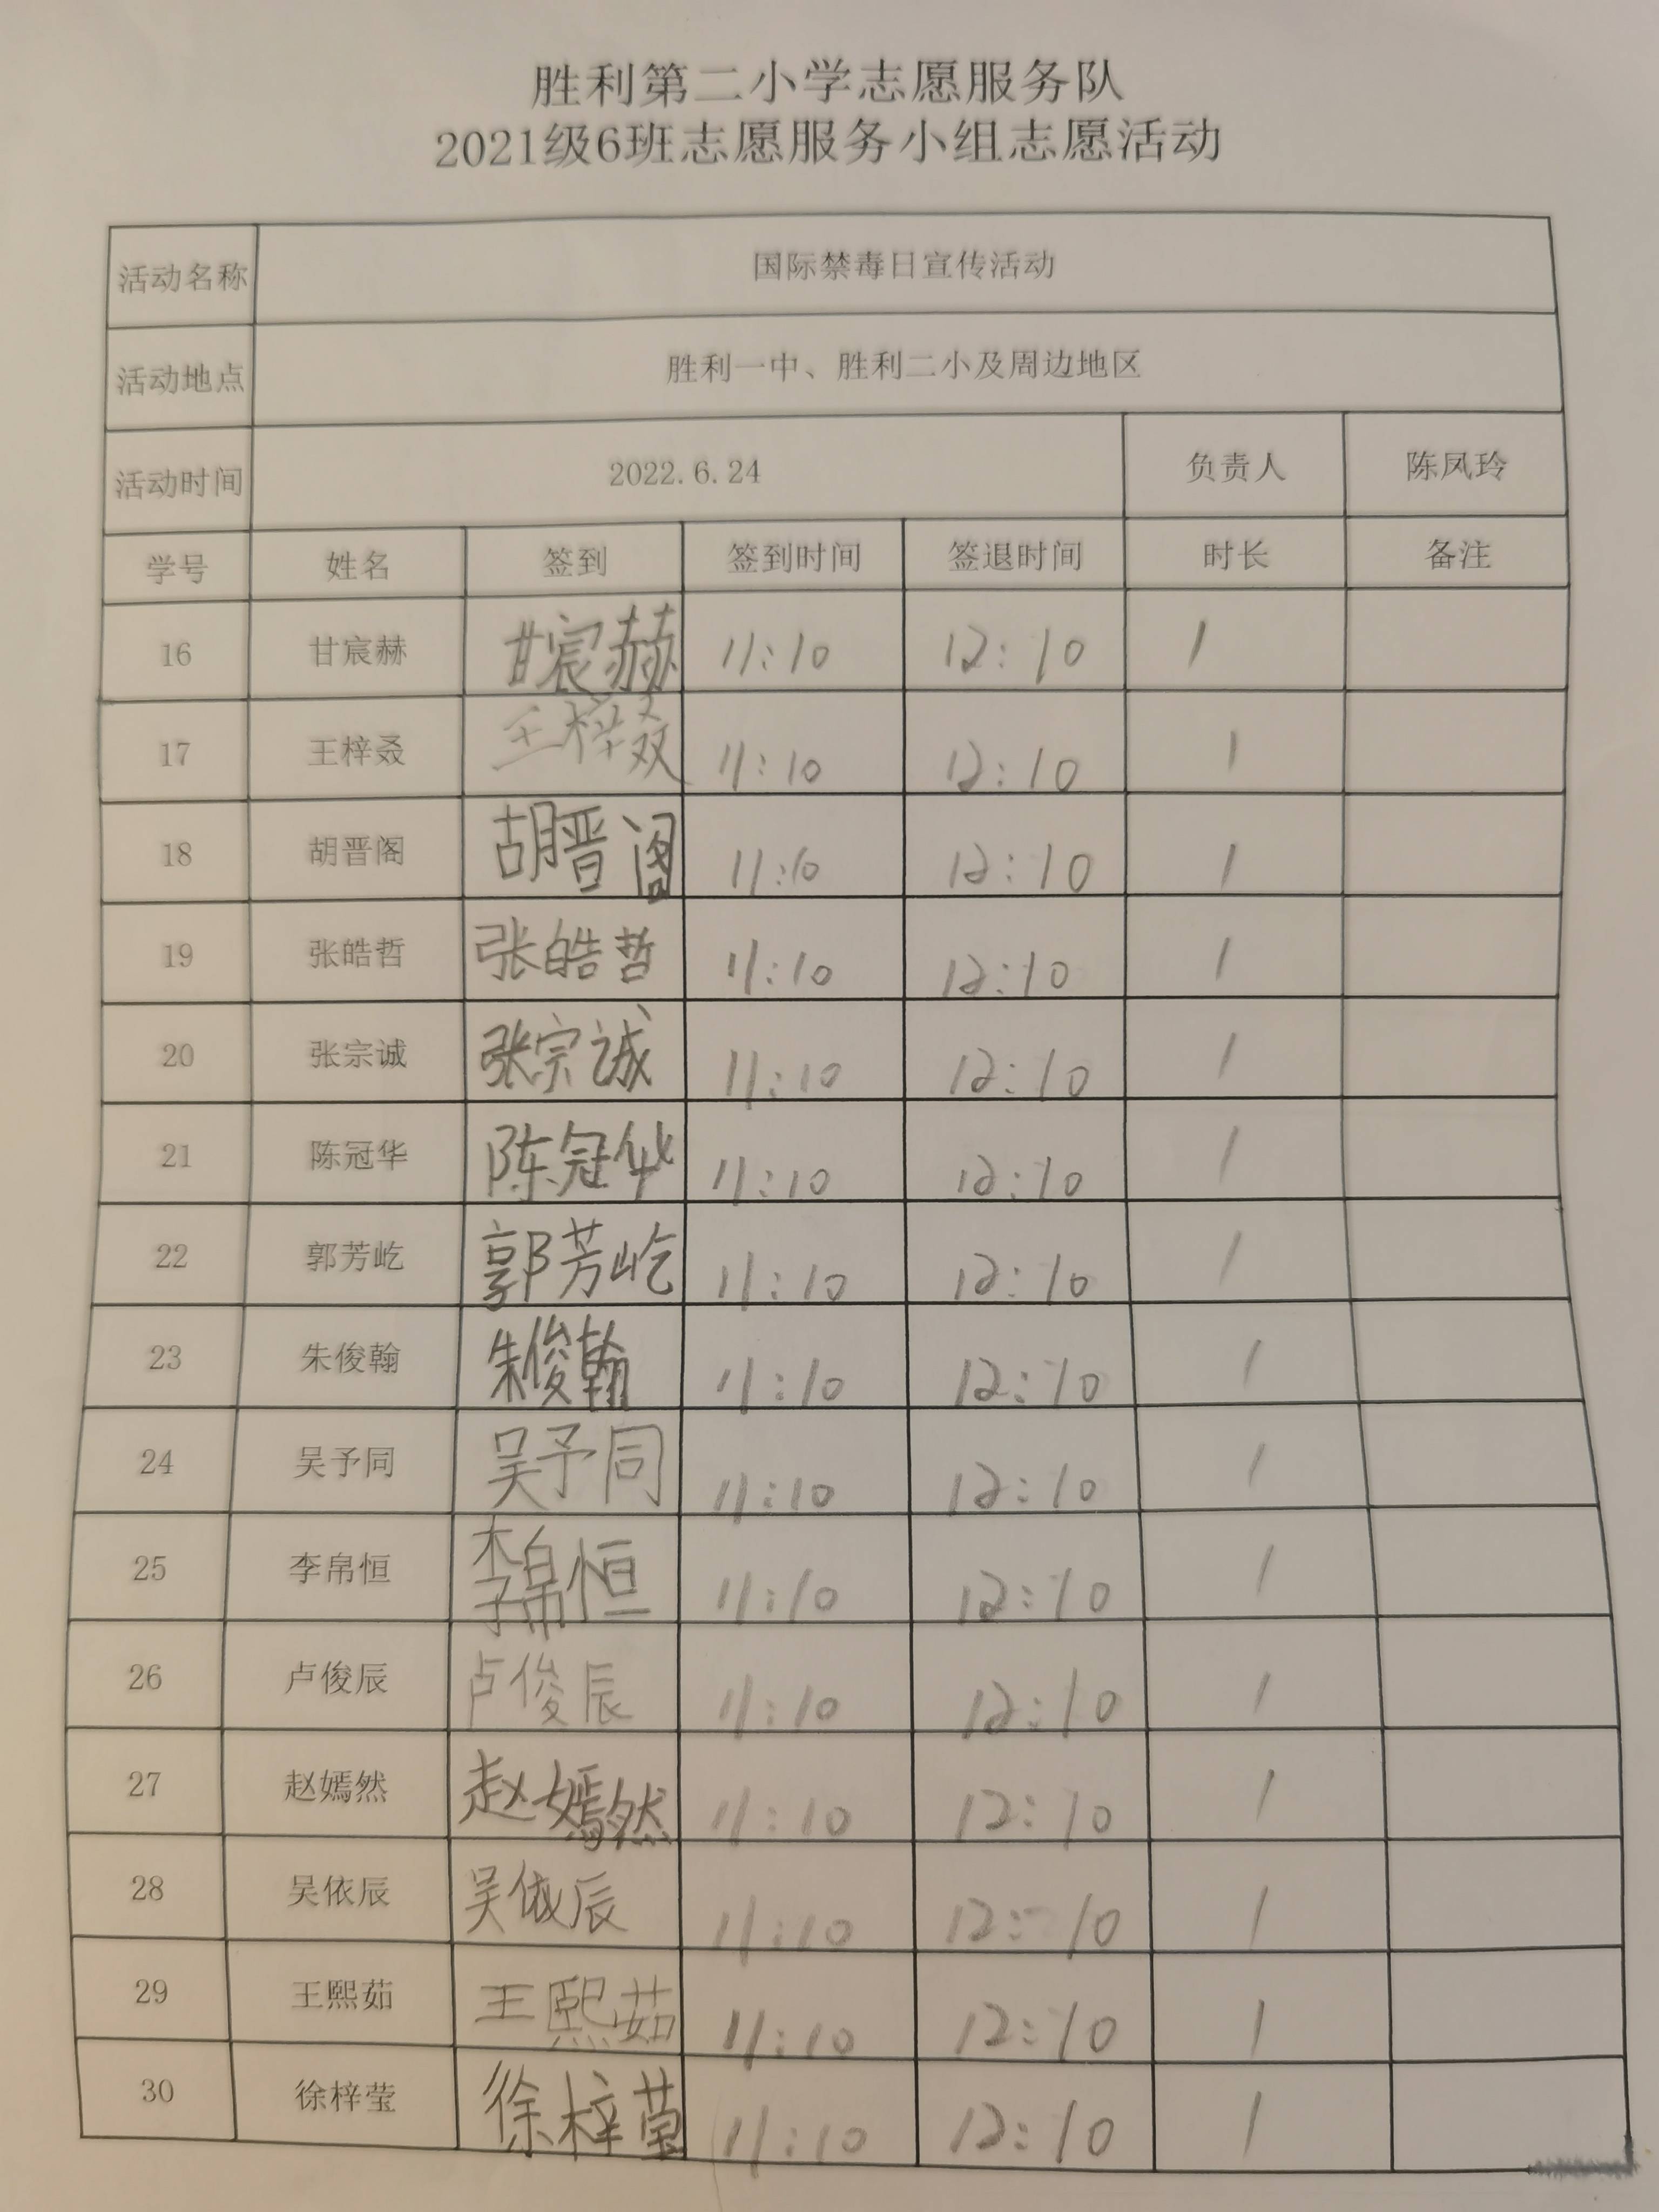 胜利第二小学志愿服务队
2021级6班志愿服务小组志愿活动
活动名称 国际禁毒日宣传活动
活动地点 胜利一中、胜利二小及周边地区
活动时间 2022.6.24 负责人 陈凤玲
学号 姓名 签到 签到时间 签退时间 时长 备注
16 甘宸赫 甘宸赫 11:10 12:10 1
17 王梓叒 王梓叒 11:10 12:10 1
18 胡晋阁 胡晋阁 11:10 12:10 1
19 张皓哲 张皓哲 11:10 12:10 1
20 张宗诚 张宗诚 11:10 12:10 1
21 陈冠华 陈冠华 11:10 12:10 1
22 郭芳屹 郭芳屹 11:10 12:10 1
23 朱俊翰 朱俊翰 11:10 12:10 1
24 吴予同 吴予同 11:10 12:10 1
25 李帛恒 李帛恒 11:10 12:10 1
26 卢俊辰 卢俊辰 11:10 12:10 1
27 赵嫣然 赵嫣然 11:10 12:10 1
28 吴依辰 吴依辰 11:10 12:10 1
29 王熙茹 王熙茹 11:10 12:10 1
30 徐梓莹 徐梓莹 11:10 12:10 1